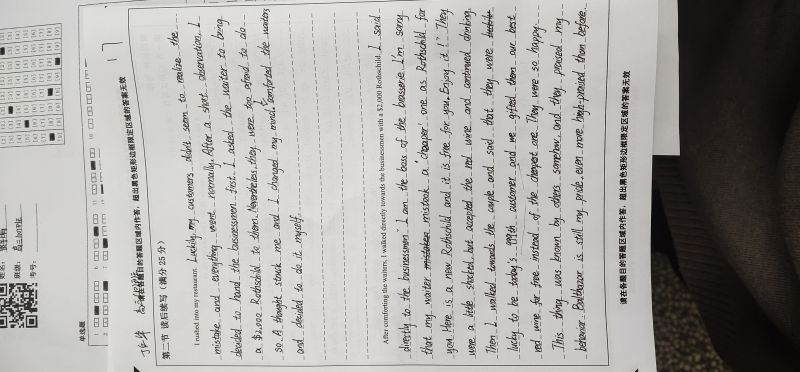 请在各题目的答题区域内作答，超出黑色矩形边框限定区域的答案无效
第二节 读后续写（满分 25 分）
I rushed into my restaurant. Luckily, my customers didn't seem to realize the
mistake and everything went normally. After a short observation, I
decided to hand the businessmen first. I asked the waiter to bring
a $2,000 Rothschild to them. Nevertheless, they were too afraid to do
so. A thought struck me and I changed my mind, comforted the waiters
and decided to do it myself.
After comforting the waiters, I walked directly towards the businessmen with a $2,000 Rothschild. I said
directly to the businessmen "I am the boss of the brasserie. I'm sorry
that my waiter mistook a 'cheaper' one as Rothschild for
you. Here is a new Rothschild and it is free for you. Enjoy it!" They
were a little shocked but accepted the red wine and continued drinking.
Then I walked towards the couple and said that they were
lucky to be today's 999th customer and we gifted them our best
red wine for free instead of the cheapest one. They were so happy.
This thing was known by others somehow and they praised my
behavior. Balthazar is still my pride, even more high-praised than before.
请在各题目的答题区域内作答，超出黑色矩形边框限定区域的答案无效
单选题
班级:
考号:
17